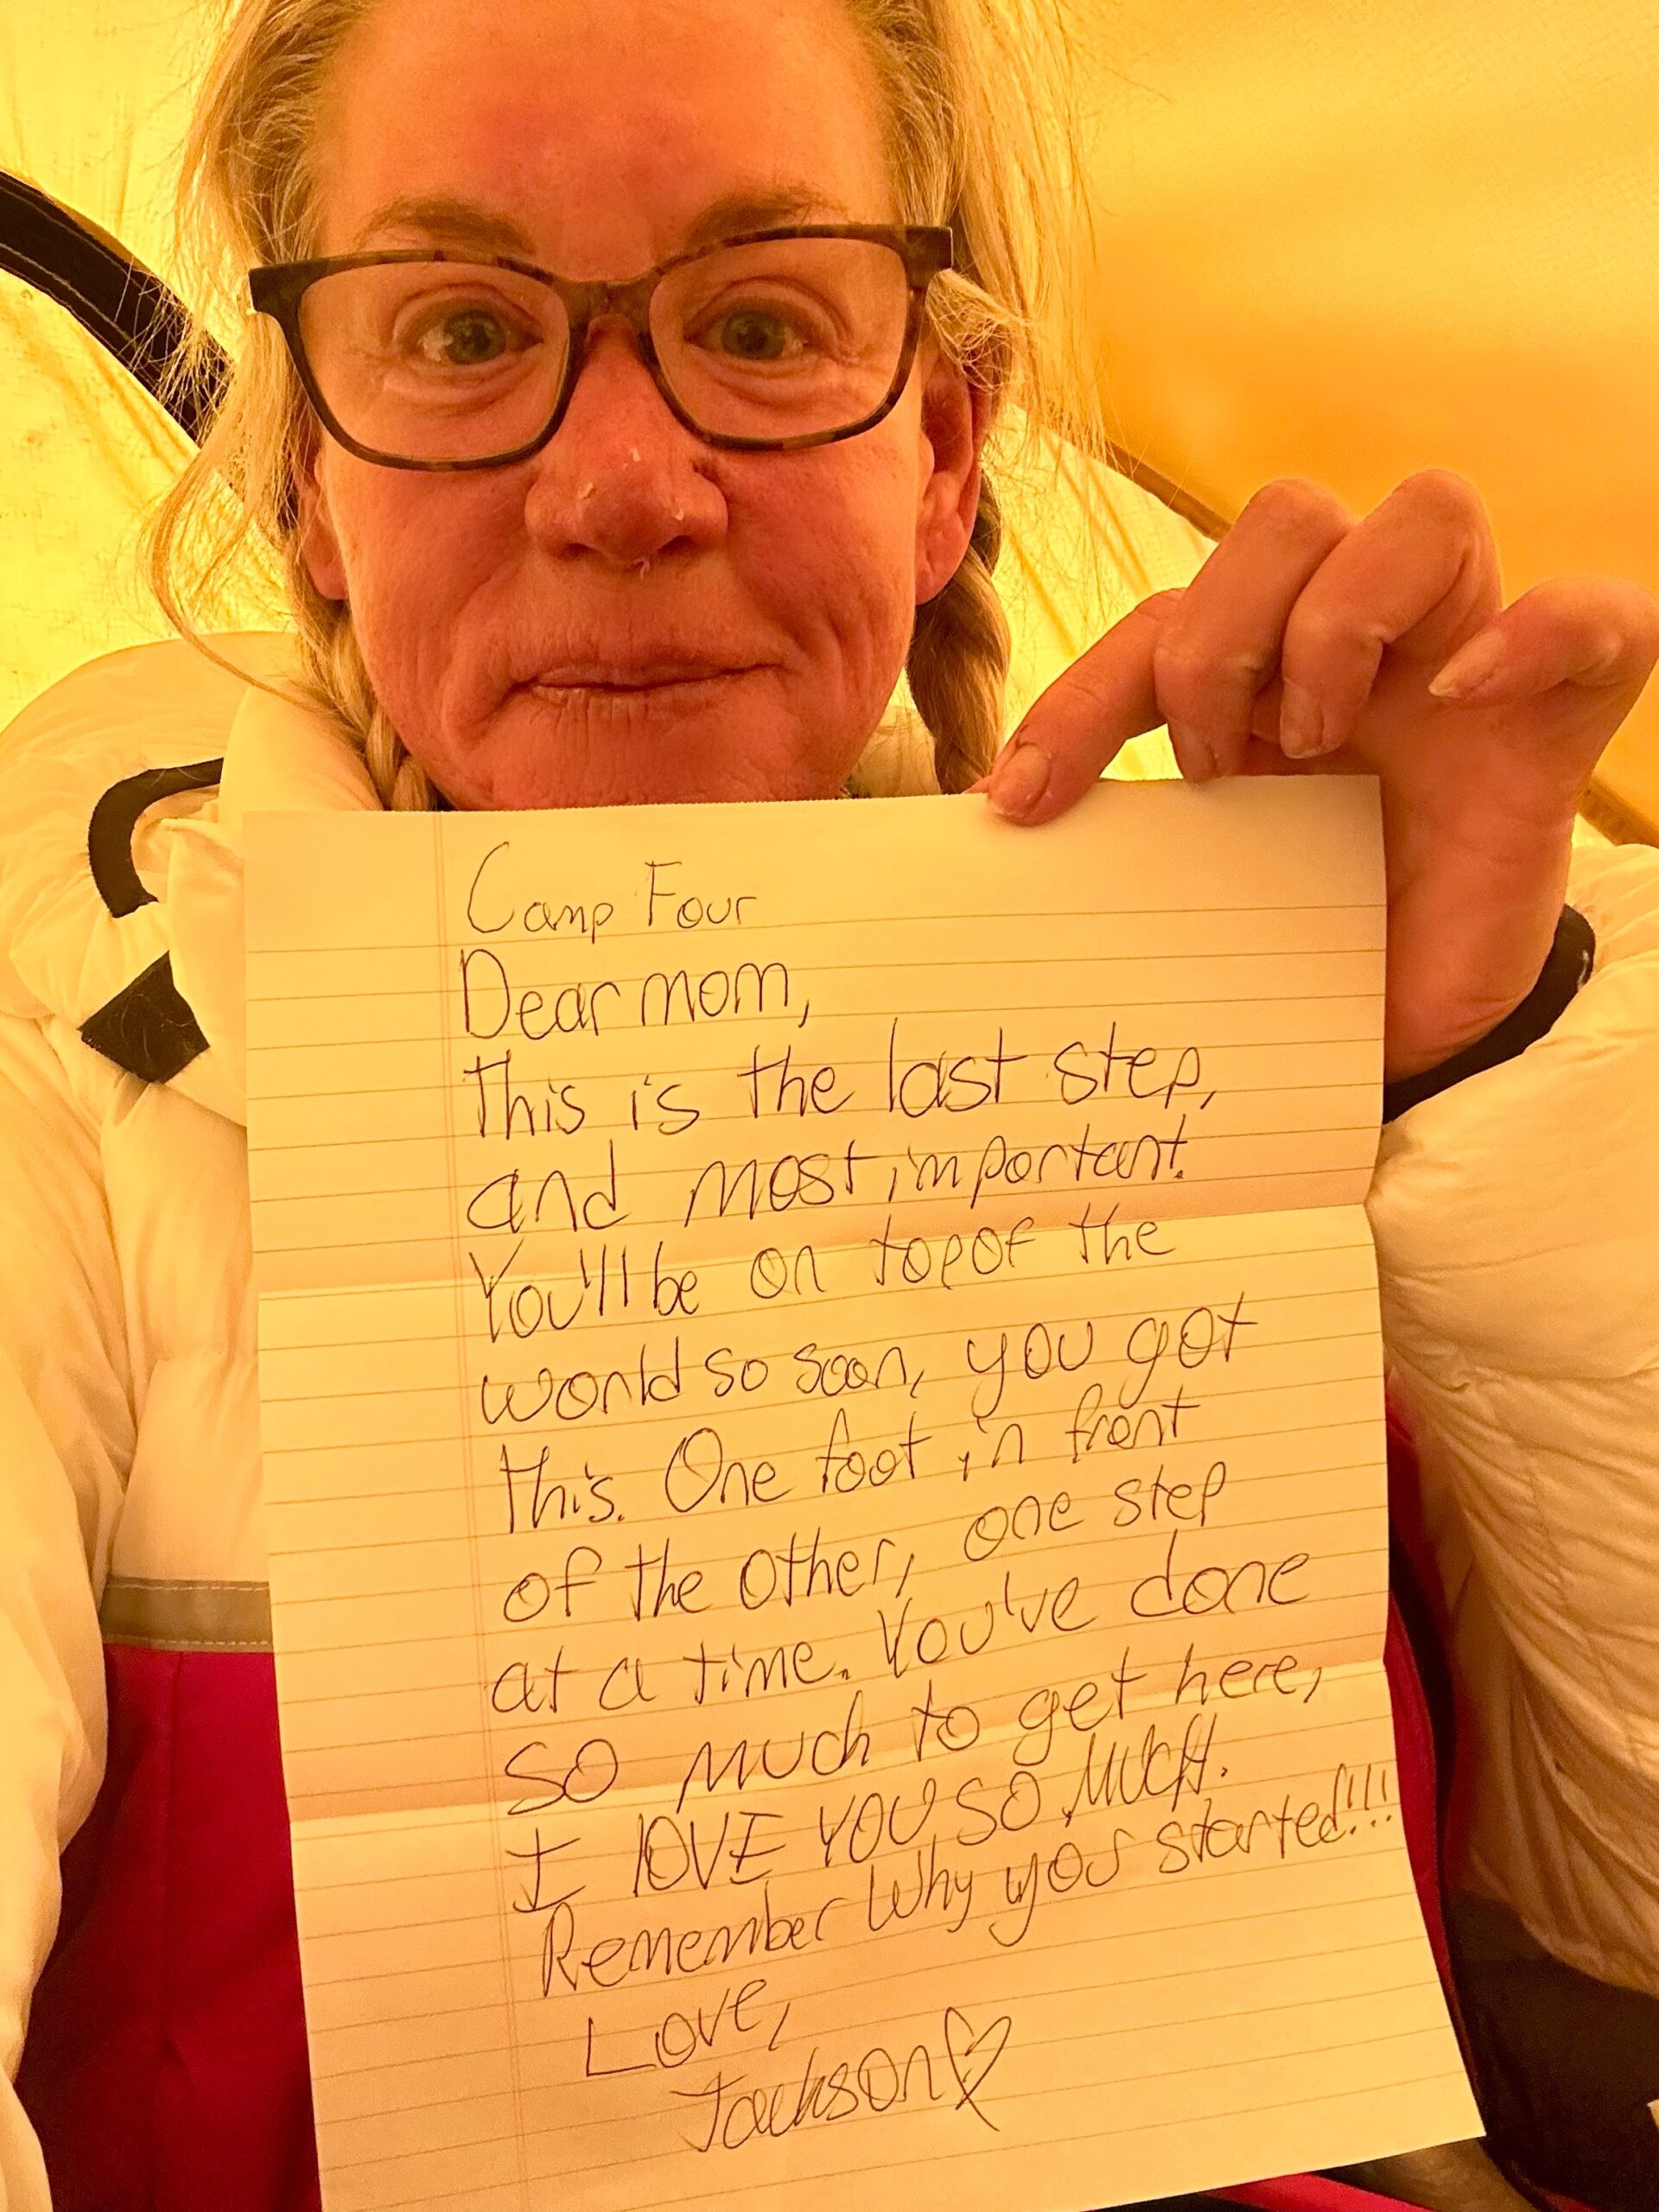 Camp Four
Dear mom,
This is the last step,
and most important.
You'll be on top of the
world so soon, you got
this. One foot in front
of the other, one step
at a time. You've done
so much to get here,
I lOVE YOU SO MUCH.
Remember why you started!!!
Love,
Jackson